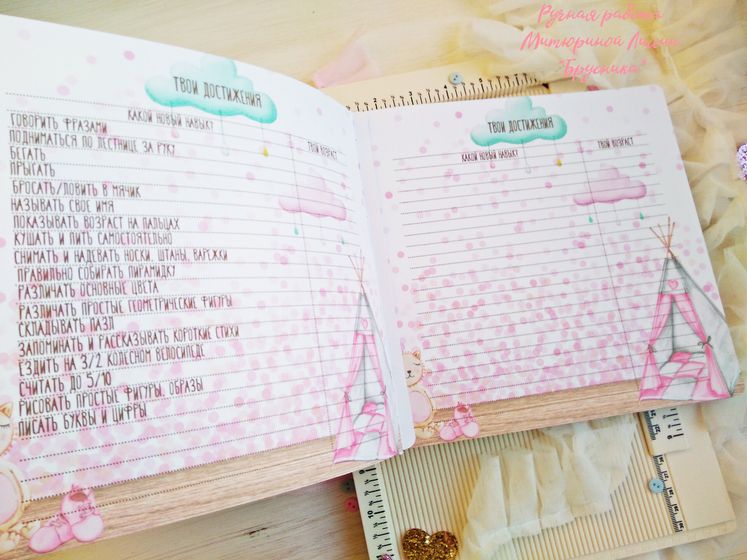 Ручная работа
Митюриной Лилии
"Брусника"
ТВОИ ДОСТИЖЕНИЯ
КАКОЙ НОВЫЙ НАВЫК?
ТВОЙ ВОЗРАСТ
ГОВОРИТЬ ФРАЗАМИ
ПОДНИМАТЬСЯ ПО ЛЕСТНИЦЕ ЗА РУКУ
БЕГАТЬ
ПРЫГАТЬ
БРОСАТЬ/ЛОВИТЬ В МЯЧИК
НАЗЫВАТЬ СВОЕ ИМЯ
ПОКАЗЫВАТЬ ВОЗРАСТ НА ПАЛЬЦАХ
КУШАТЬ И ПИТЬ САМОСТОЯТЕЛЬНО
СНИМАТЬ И НАДЕВАТЬ НОСКИ, ШТАНЫ, ВАРЕЖКИ
ПРАВИЛЬНО СОБИРАТЬ ПИРАМИДКУ
РАЗЛИЧАТЬ ОСНОВНЫЕ ЦВЕТА
РАЗЛИЧАТЬ ПРОСТЫЕ ГЕОМЕТРИЧЕСКИЕ ФИГУРЫ
СКЛАДЫВАТЬ ПАЗЛ
ЗАПОМИНАТЬ И РАССКАЗЫВАТЬ КОРОТКИЕ СТИХИ
ЕЗДИТЬ НА 3/2 КОЛЕСНОМ ВЕЛОСИПЕДЕ
СЧИТАТЬ ДО 5/10
РИСОВАТЬ ПРОСТЫЕ ФИГУРЫ, ОБРАЗЫ
ПИСАТЬ БУКВЫ И ЦИФРЫ
ТВОИ ДОСТИЖЕНИЯ
КАКОЙ НОВЫЙ НАВЫК?
ТВОЙ ВОЗРАСТ